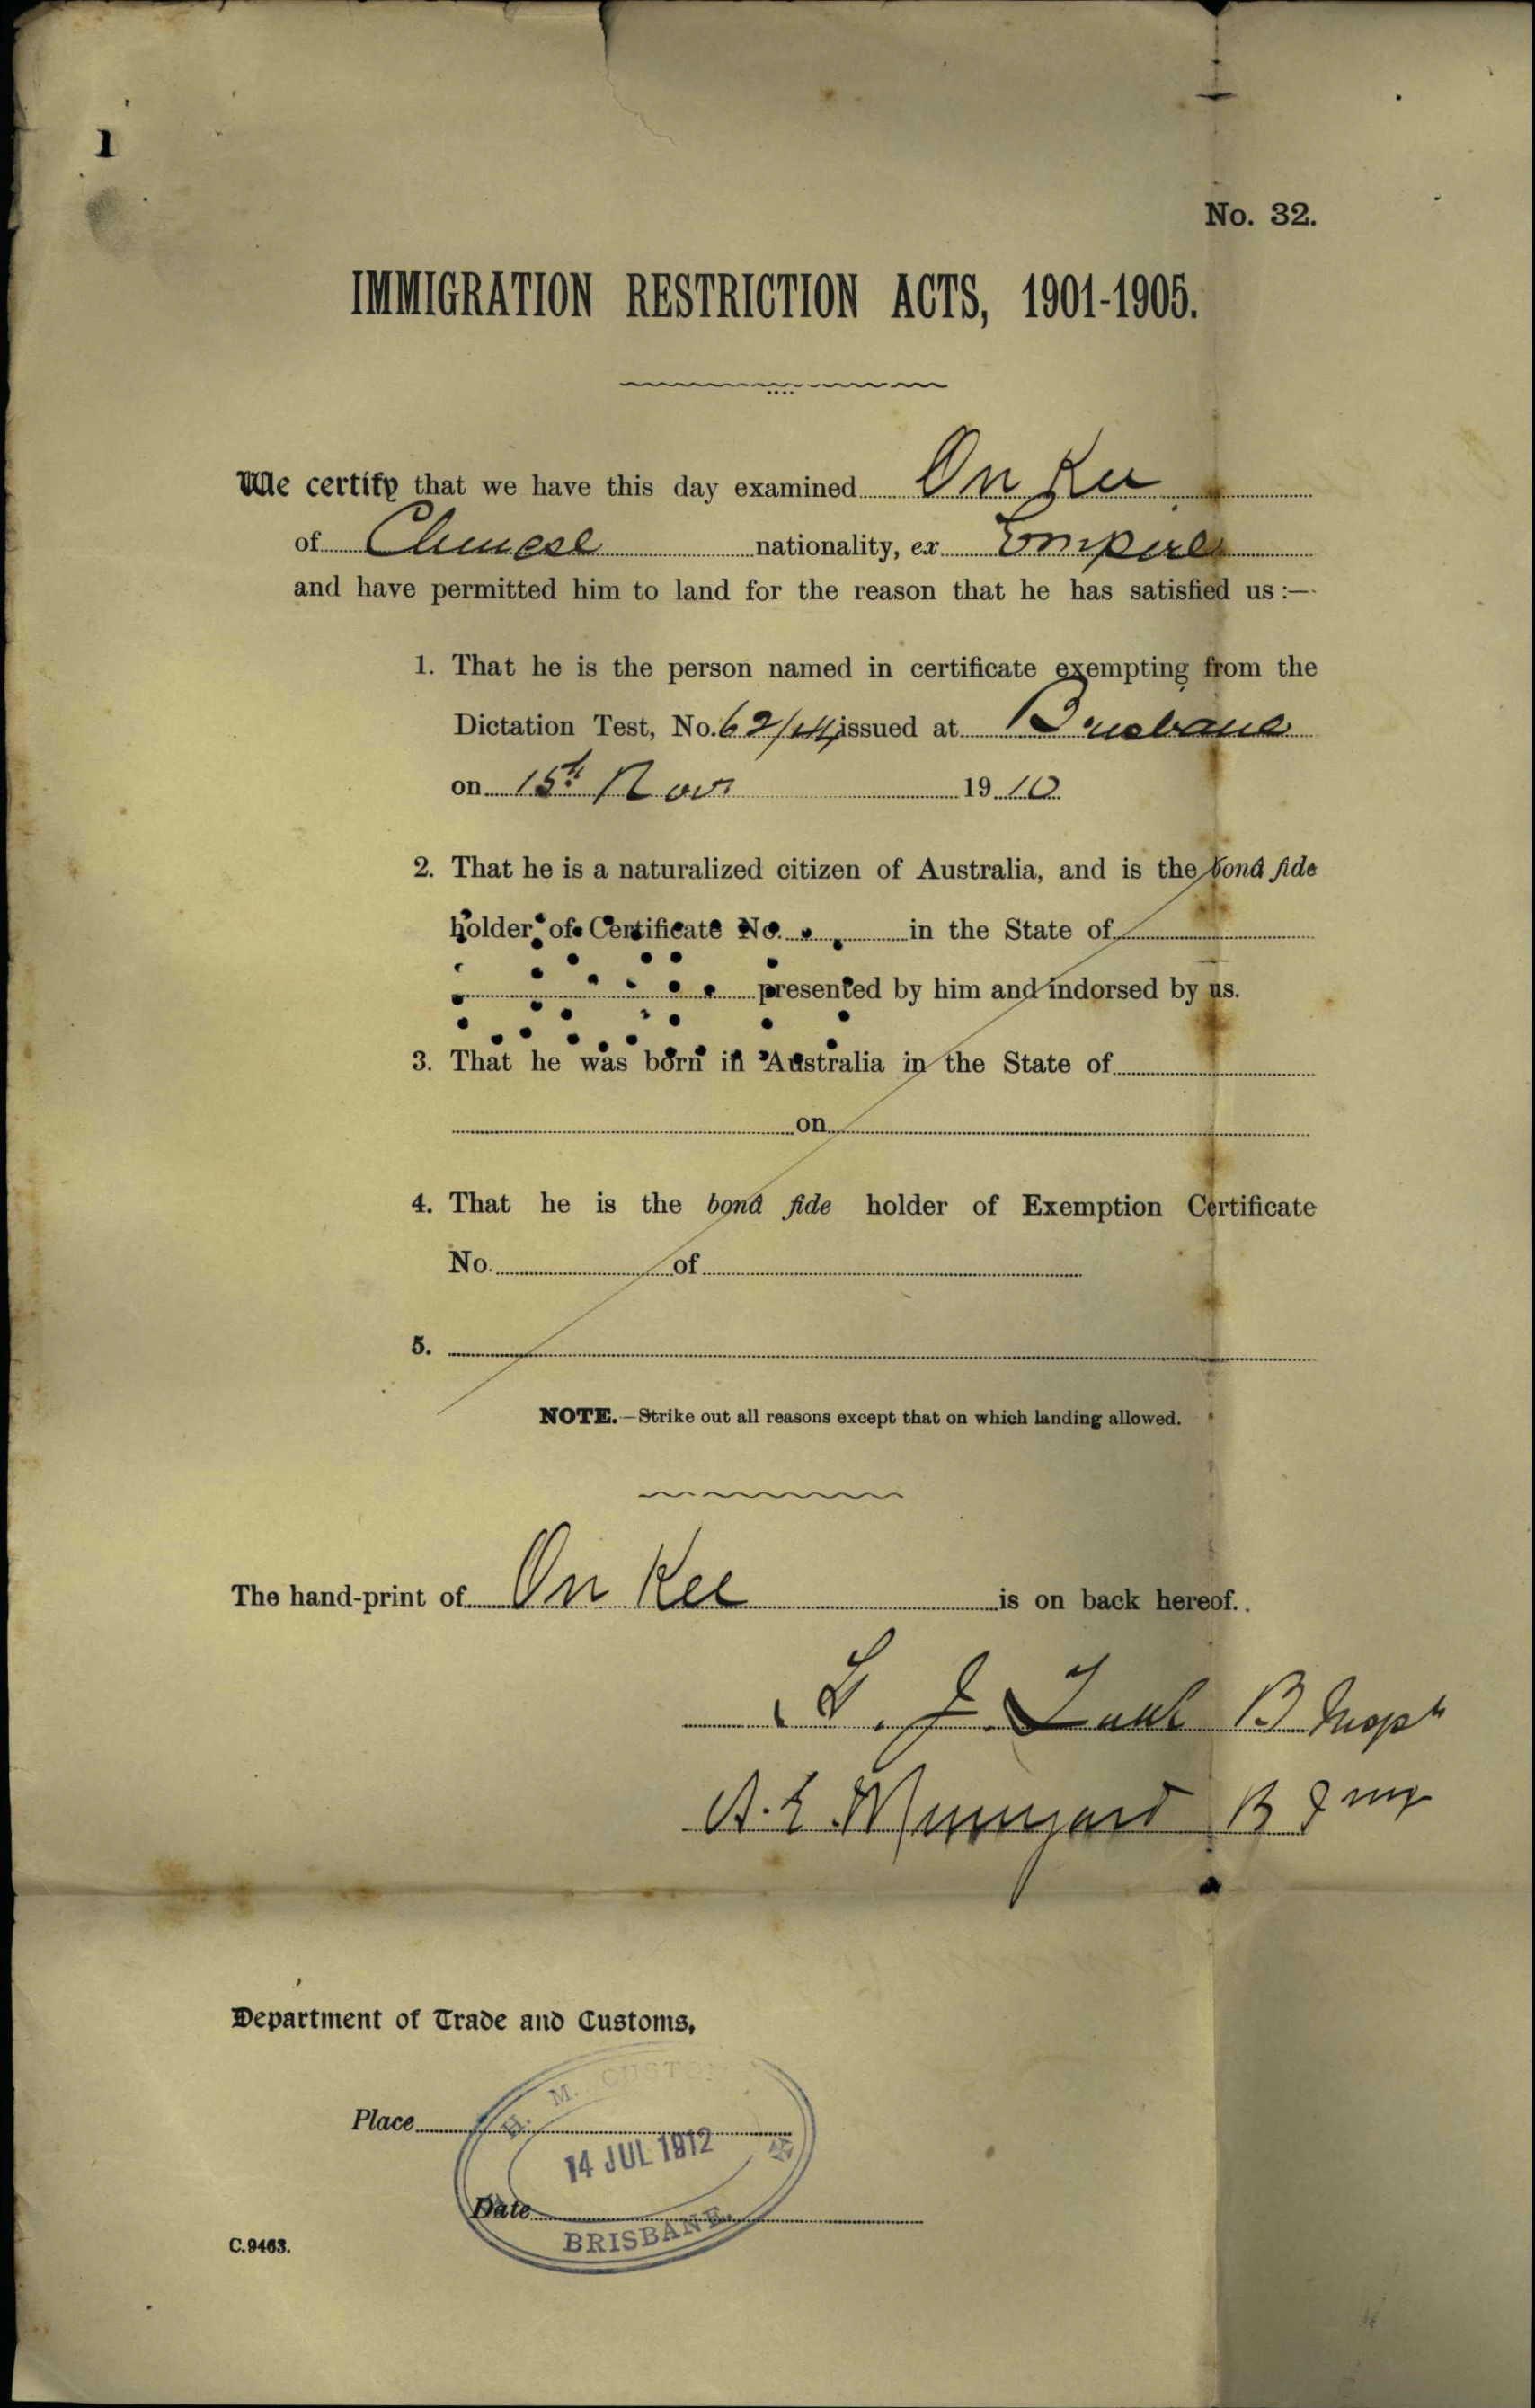 1
No. 32.
IMMIGRATION RESTRICTION ACTS, 1901-1905.
We certify that we have this day examined On Kee
of Chinese nationality, ex Empire
and have permitted him to land for the reason that he has satisfied us :—
1. That he is the person named in certificate exempting from the
Dictation Test, No. issued at Brisbane
on 15th Novr 1910
2. That he is a naturalized citizen of Australia, and is the bonâ fide
holder of Certificate No. in the State of
presented by him and indorsed by us.
3. That he was born in Australia in the State of
on
4. That he is the bonâ fide holder of Exemption Certificate
No. of
5.
NOTE.—Strike out all reasons except that on which landing allowed.
The hand-print of On Kee is on back hereof.
J. B
A. E. B
Department of Trade and Customs,
H. M. CUSTOMS
Place
14 JUL 1912
Date
BRISBANE.
C.9463.